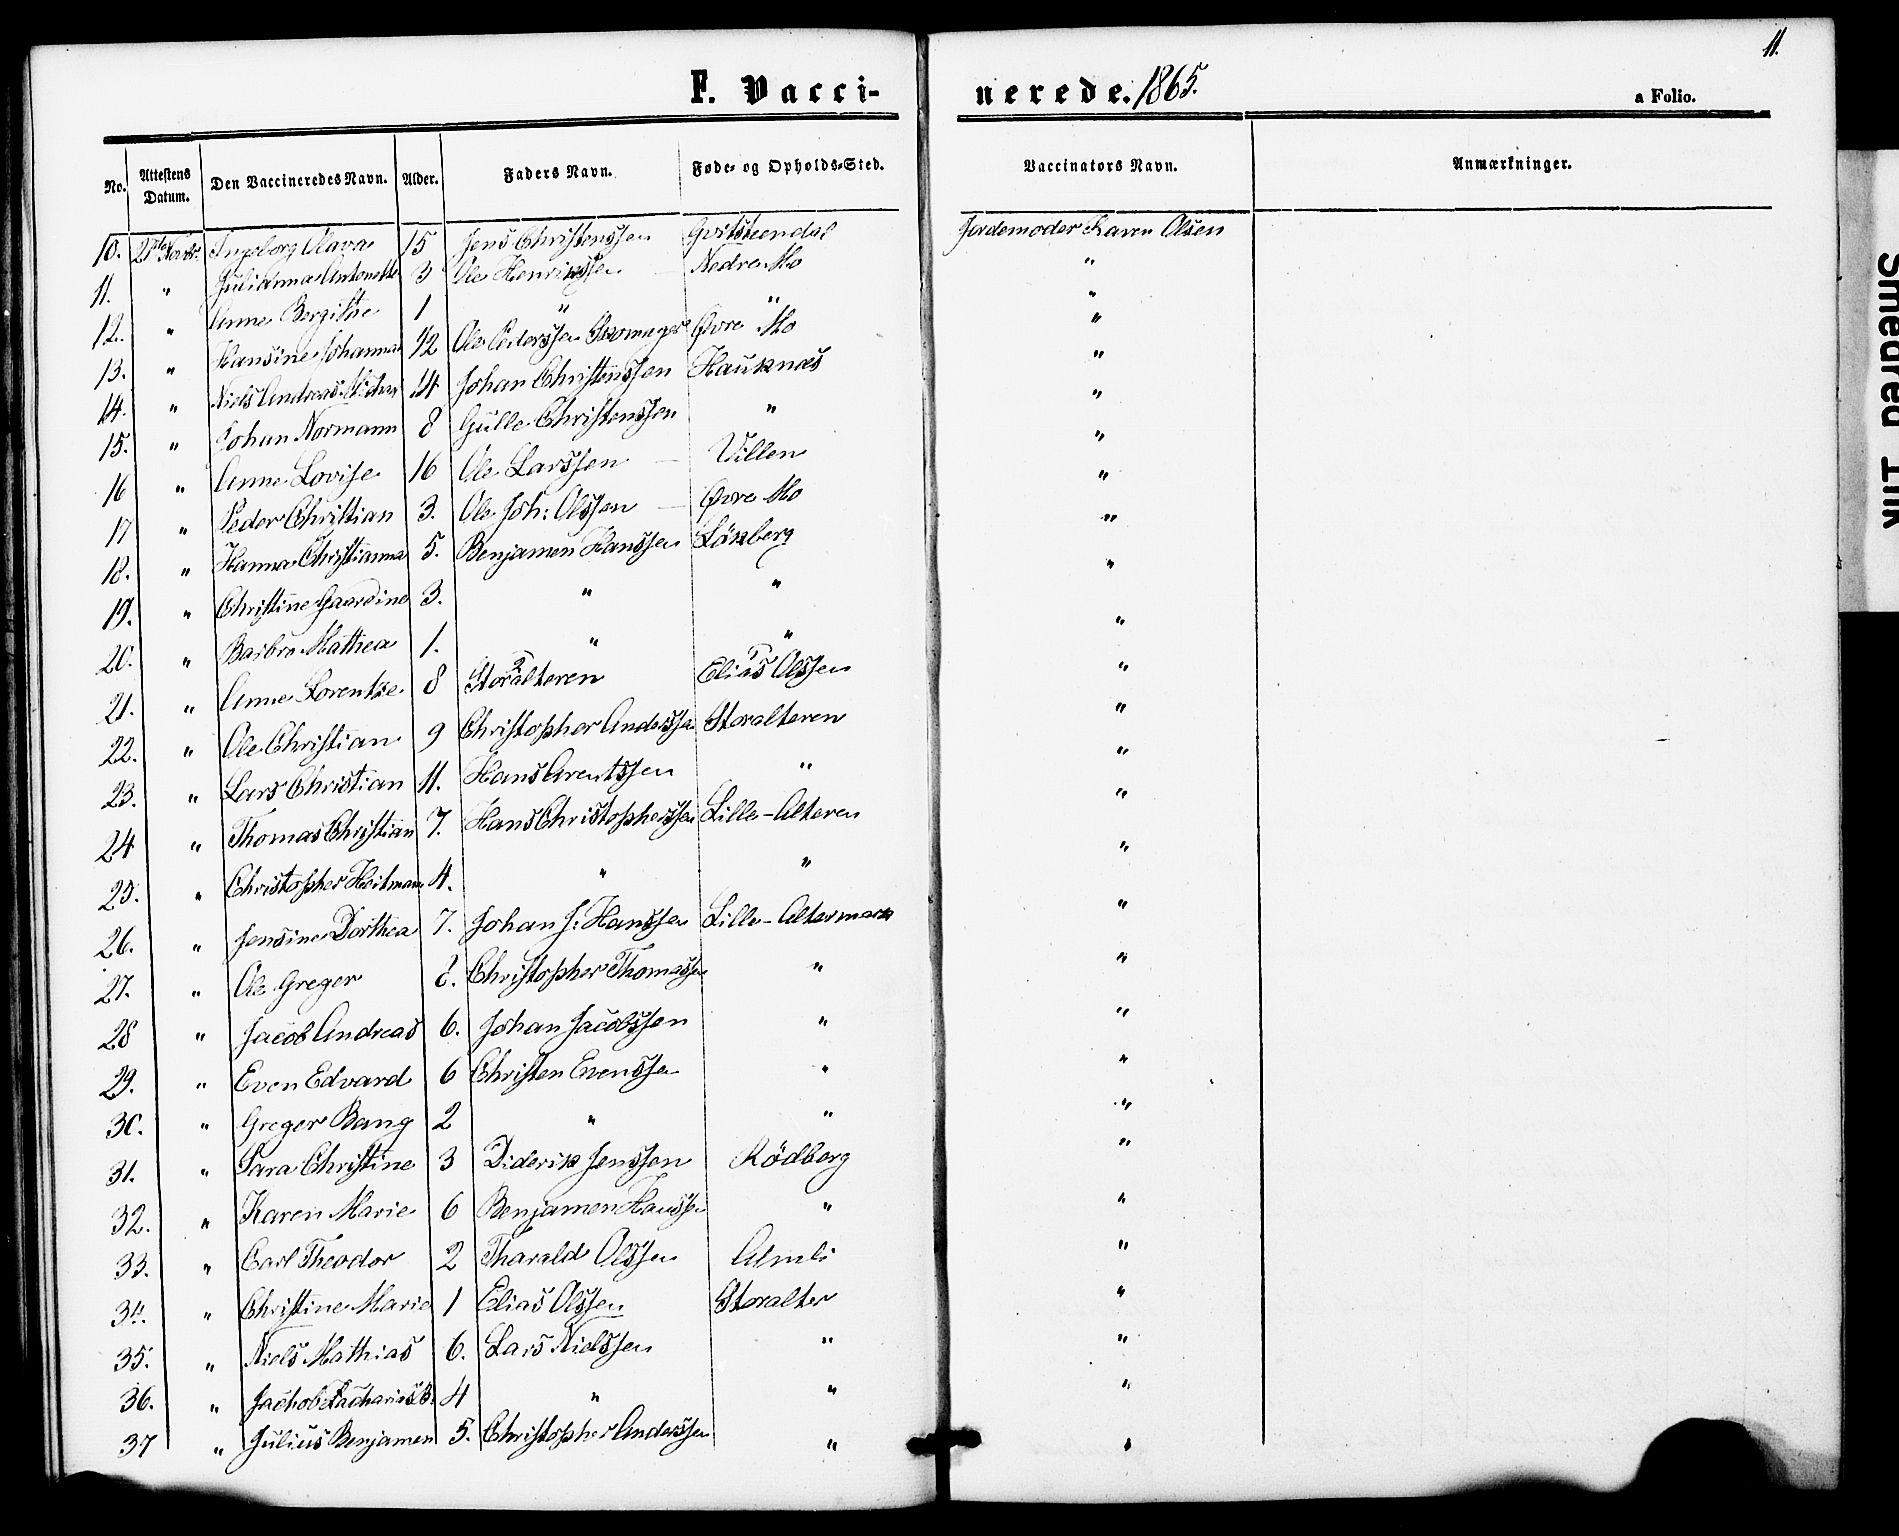 11.
F. Vaccinerede. 1865.
a Folio.
No. Attestens Datum. Den Vaccineredes Navn. Alder. Faders Navn. Føde- og Opholds-Sted. Vaccinators Navn. Anmærkninger.
10. 21de Novbr. Ingeborg Olava 15 Jens Christenssen Gvitsteendal Jordemoder Karen Olsen
11. " Julianna Antonette 3 Ole Henrikssen Nedre Mo "
12. " Anne Bergitte 1 " " "
13. " Hansine Johanna 12 Ole Pederssen Skomager Øvre Mo "
14. " Niels Andreas 14 Johan Christenssen Hauknæs "
15. " Johan Normann 8 Gulle Christenssen " "
16 " Anne Lovise 16 Ole Larssen Villen "
17 " Peder Christian 3. Ole Joh: Olssen Øvre Mo "
18. " Hanna Christianna 5. Benjamen Hanssen Lökberg "
19. " Christine Gaardine 3. " " "
20. " Barbro Mathea 1. " " "
21. " Anne Lorentze 8 Storalteren 2 Elias Olssen 1 "
22. " Ole Christian 9 Christopher Anderssen Storalteren "
23. " Lars Christian 11. Hans Arentssen " "
24 " Thomas Christian 7. Hans Christopherssen Lille-Alteren "
25. " Christopher Heitmann 4. " " "
26. " Jensine Dorthea 7. Johan J: Hanssen Lille-Altermark "
27. " Ole Greger 8. Christopher Thomassen " "
28 " Jacob Andreas 6. Johan Jacobssen " "
29. " Even Edvard 6 Christen Evenssen " "
30. " Greger Bang 2 " " "
31. " Sara Christine 3 Diderik Jenssen Rödberg "
32. " Karen Marie 6 Benjamen Hanssen " "
33. " Carl Theodor 2 Tharald Olssen Almli "
34. " Christine Marie 1 Elias Olssen Storalter "
35. " Niels Mathias 6. Lars Nielssen " "
36. " Jachob Zacharias B. 4 " " "
37 " Julius Benjamen 5. Christopher Anderssen " "